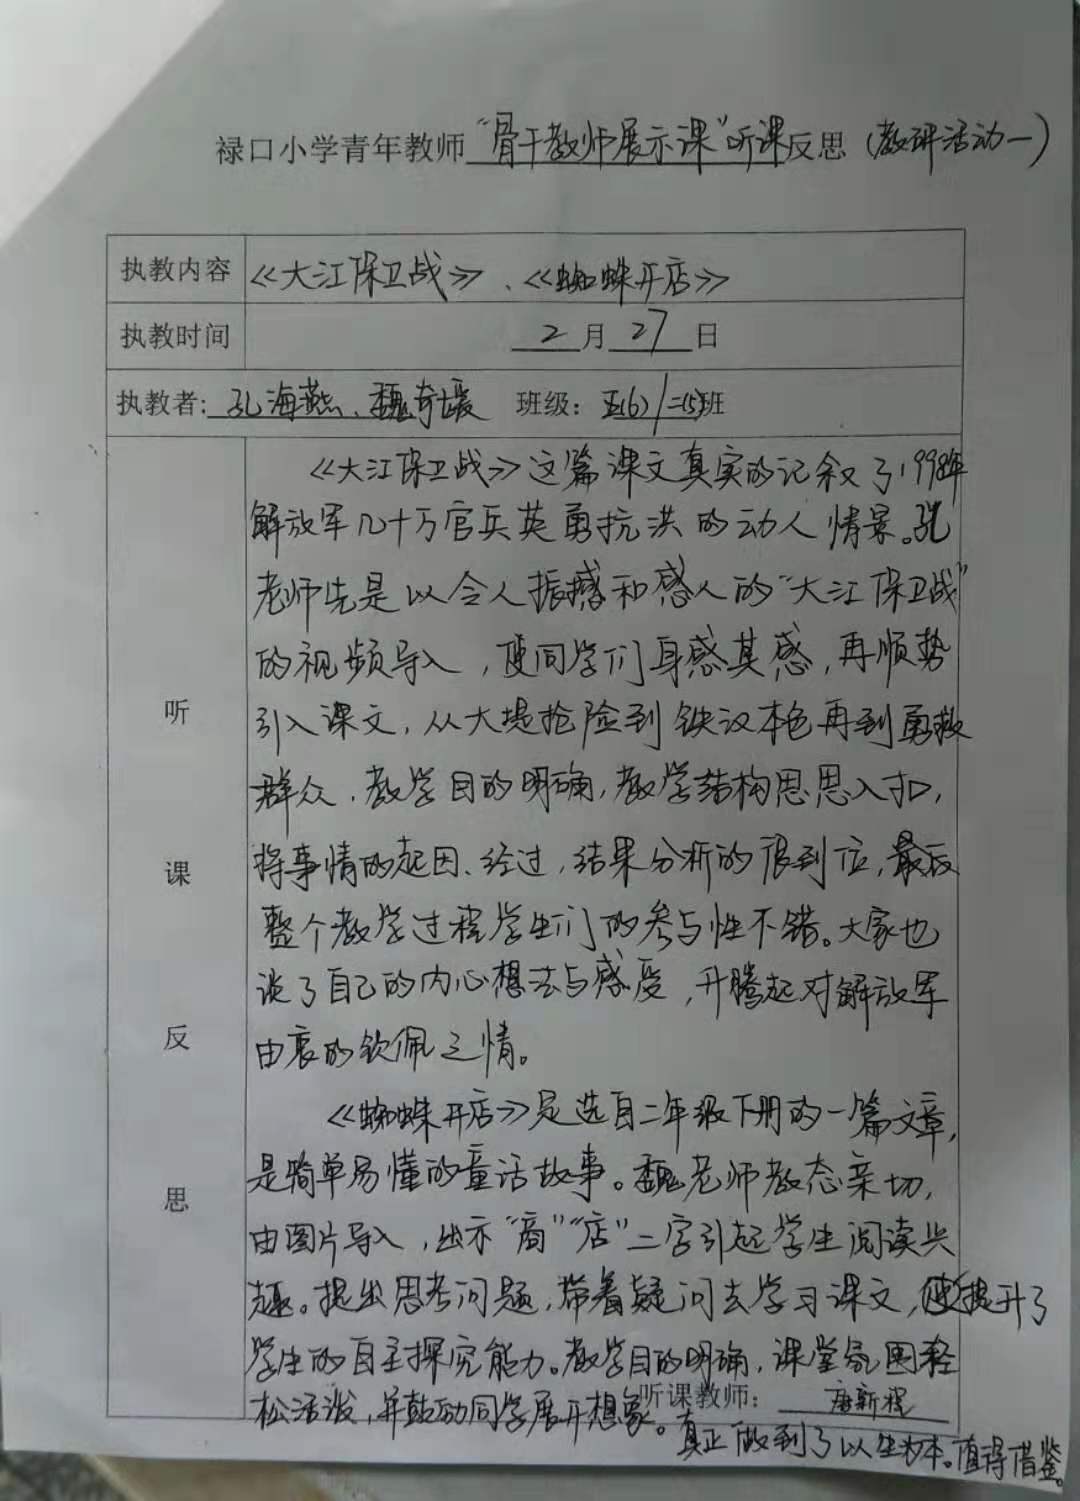 禄口小学青年教师“骨干教师展示课”听课反思（教研活动一）
执教内容 《大江保卫战》、《蜘蛛开店》
执教时间 2月27日
执教者：孔海燕、魏奇媛 班级：五(6)/二(5)班
听课反思
《大江保卫战》这篇课文真实的记叙了1998年
解放军几十万官兵英勇抗洪的动人情景。孔
老师先是以令人振撼和感人的“大江保卫战”
的视频导入，使同学们身感其感，再顺势
引入课文，从大堤抢险到铁汉本色再到勇救
群众、教学目的明确，教学结构思思入扣，
将事情的起因、经过，结果分析的很到位，最后
整个教学过程学生们的参与性不错。大家也
谈了自己的内心想法与感受，升腾起对解放军
由衷的钦佩之情。
《蜘蛛开店》是选自二年级下册的一篇文章，
是简单易懂的童话故事。魏老师教态亲切，
由图片导入，出示“商”“店”二字引起学生阅读兴
趣。提出思考问题，带着疑问去学习课文，提升了
学生的自主探究能力。教学目的明确，课堂氛围轻
松活泼，并鼓励同学展开想象。真正做到了以生为本。值得借鉴。
听课教师：唐新程